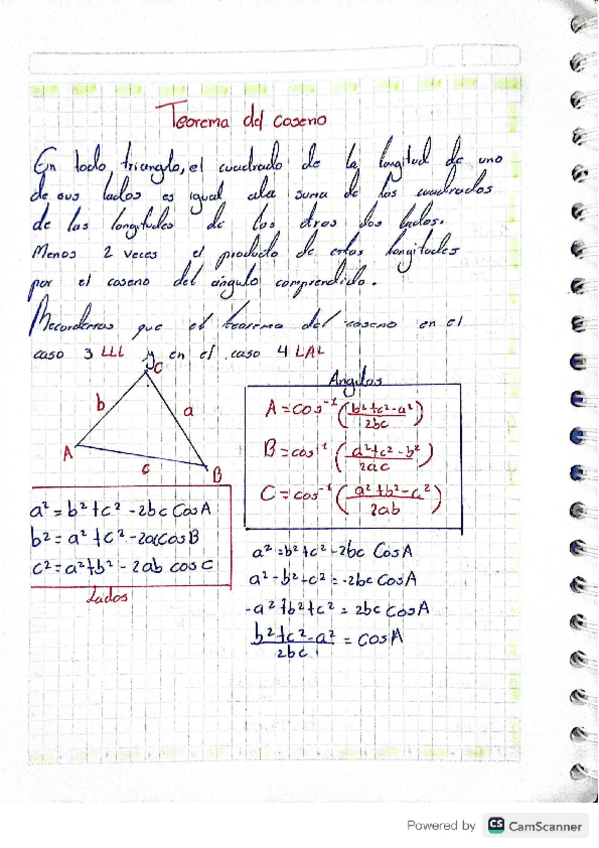 Teorema del coseno
En todo triangulo, el cuadrado de la longitud de uno
de sus lados es igual ala suma de los cuadrados
de las longitudes de los otros dos lados.
Menos 2 veces el producto de estas longitudes
por el coseno del ángulo comprendido.
Recordemos que el teorema del coseno en el
caso 3 LLL y en el caso 4 LAL
C
b
a
A
c
B
Angulos
A = cos⁻¹ (b²+c²-a² / 2bc)
B = cos⁻¹ (a²+c²-b² / 2ac)
C = cos⁻¹ (a²+b²-c² / 2ab)
a² = b²+c² -2bc CosA
b² = a²+c² -2accosB
c² = a²+b² - 2ab cosC
Lados
a² = b²+c² -2bc CosA
a²-b²-c² = -2bc CosA
-a²+b²+c² = 2bc CosA
b²+c²-a² / 2bc = cosA
Powered by CS CamScanner